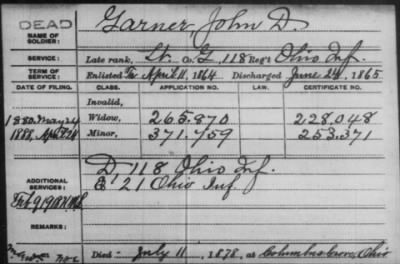 DEAD
NAME OF SOLDIER: Garner, John D.
SERVICE: Late rank, Lt. Co. G, 118 Reg't Ohio Inf.
TERM OF SERVICE: Enlisted April 11, 1864 Discharged June 24, 1865
DATE OF FILING. CLASS. APPLICATION NO. LAW. CERTIFICATE NO.
Invalid,
1880 May 24 Widow, 265.870 228.048
1888, Apr. Minor, 371.759 253.371
D 118 Ohio Inf.
ADDITIONAL SERVICES: E 21 Ohio Inf.
REMARKS:
Died July 11, 1878, at Columbus Grove, Ohio